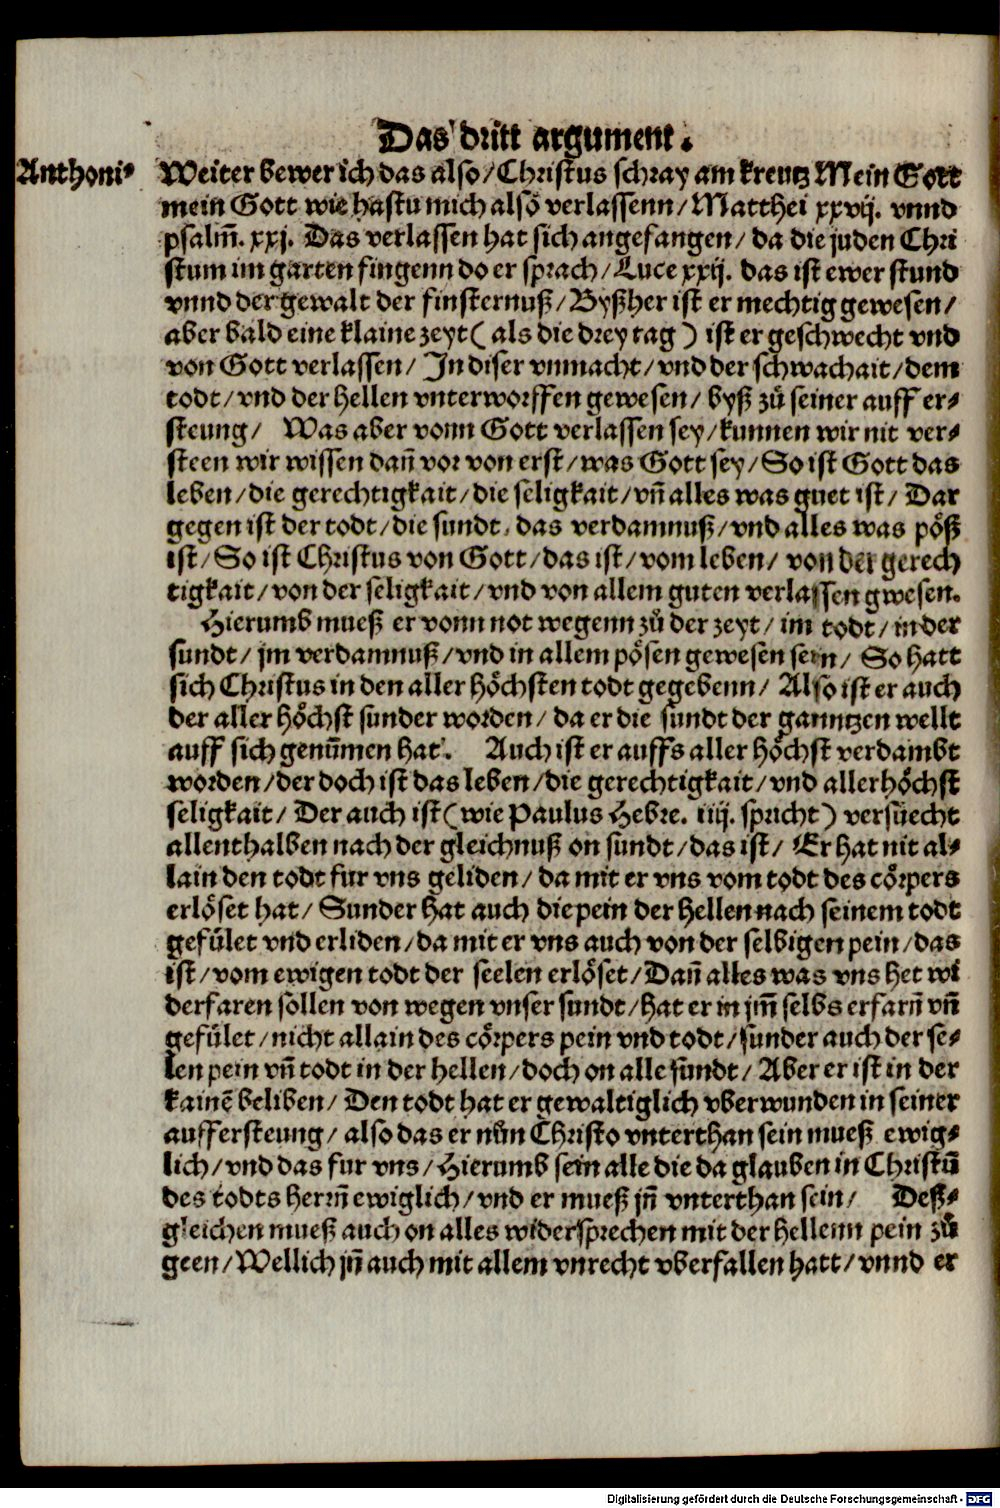 Das dritt argument.
Anthoni⸗
Weiter bewer ich das also/Christus schray am kreutz Mein Gott
mein Gott wie hastu mich also verlassenn/Matthei xxvij. vnnd
psalm̃. xxj. Das verlassen hat sich angefangen/da die juden Chri
stum im garten fingenn do er sprach/Luce xxij. das ist ewer stund
vnnd der gewalt der finsternuß/Byßher ist er mechtig gewesen/
aber bald eine klaine zeyt(als die drey tag) ist er geschwecht vnd
von Gott verlassen/In diser vnmacht/vnd der schwachait/dem
todt/vnd der hellen vnterworffen gewesen/byß zů seiner auff er⸗
steung/ Was aber vonn Gott verlassen sey/kunnen wir nit ver⸗
steen wir wissen dañ vor von erst/was Gott sey/So ist Gott das
leben/die gerechtigkait/die seligkait/vñ alles was guet ist/Dar
gegen ist der todt/die sundt, das verdamnuß/vnd alles was pöß
ist/So ist Christus von Gott/das ist/vom leben/von der gerech
tigkait/von der seligkait/vnd von allem guten verlassen gwesen.
Hierumb mueß er vonn not wegenn zů der zeyt/im todt/in der
sundt/jm verdamnuß/vnd in allem pösen gewesen sein/ So hatt
sich Christus in den aller höchsten todt gegebenn/Also ist er auch
der aller höchst sunder worden/da er die sundt der ganntzen wellt
auff sich genũmen hat. Auch ist er auffs aller höchst verdambt
worden/der doch ist das leben/die gerechtigkait/vnd allerhöchst
seligkait/Der auch ist(wie Paulus Hebre. iiij. spricht) versüecht
allenthalben nach der gleichnuß on sundt/das ist/Er hat nit al⸗
lain den todt fur vns geliden/da mit er vns vom todt des cörpers
erlöset hat/Sunder hat auch die pein der hellen nach seinem todt
gefület vnd erliden/da mit er vns auch von der selbigen pein/das
ist/vom ewigen todt der seelen erlöset/Dañ alles was vns het wi
derfaren sollen von wegen vnser sundt/hat er in jm̃ selbs erfarñ vñ
gefület/nicht allain des cörpers pein vnd todt/sunder auch der se⸗
len pein vñ todt in der hellen/doch on alle sundt/Aber er ist in der
kainẽ beliben/Den todt hat er gewaltiglich vberwunden in seiner
auffersteung/also das er nůn Christo vnterthan sein mueß ewig⸗
lich/vnd das fur vns/Hierumb sein alle die da glauben in Christũ
des todts herrñ ewiglich/vnd er mueß jñ vnterthan sein/ Deß⸗
gleichen mueß auch on alles widersprechen mit der hellenn pein zů
geen/Wellich jñ auch mit allem vnrecht vberfallen hatt/vnnd er
Digitalisierung gefördert durch die Deutsche Forschungsgemeinschaft - DFG